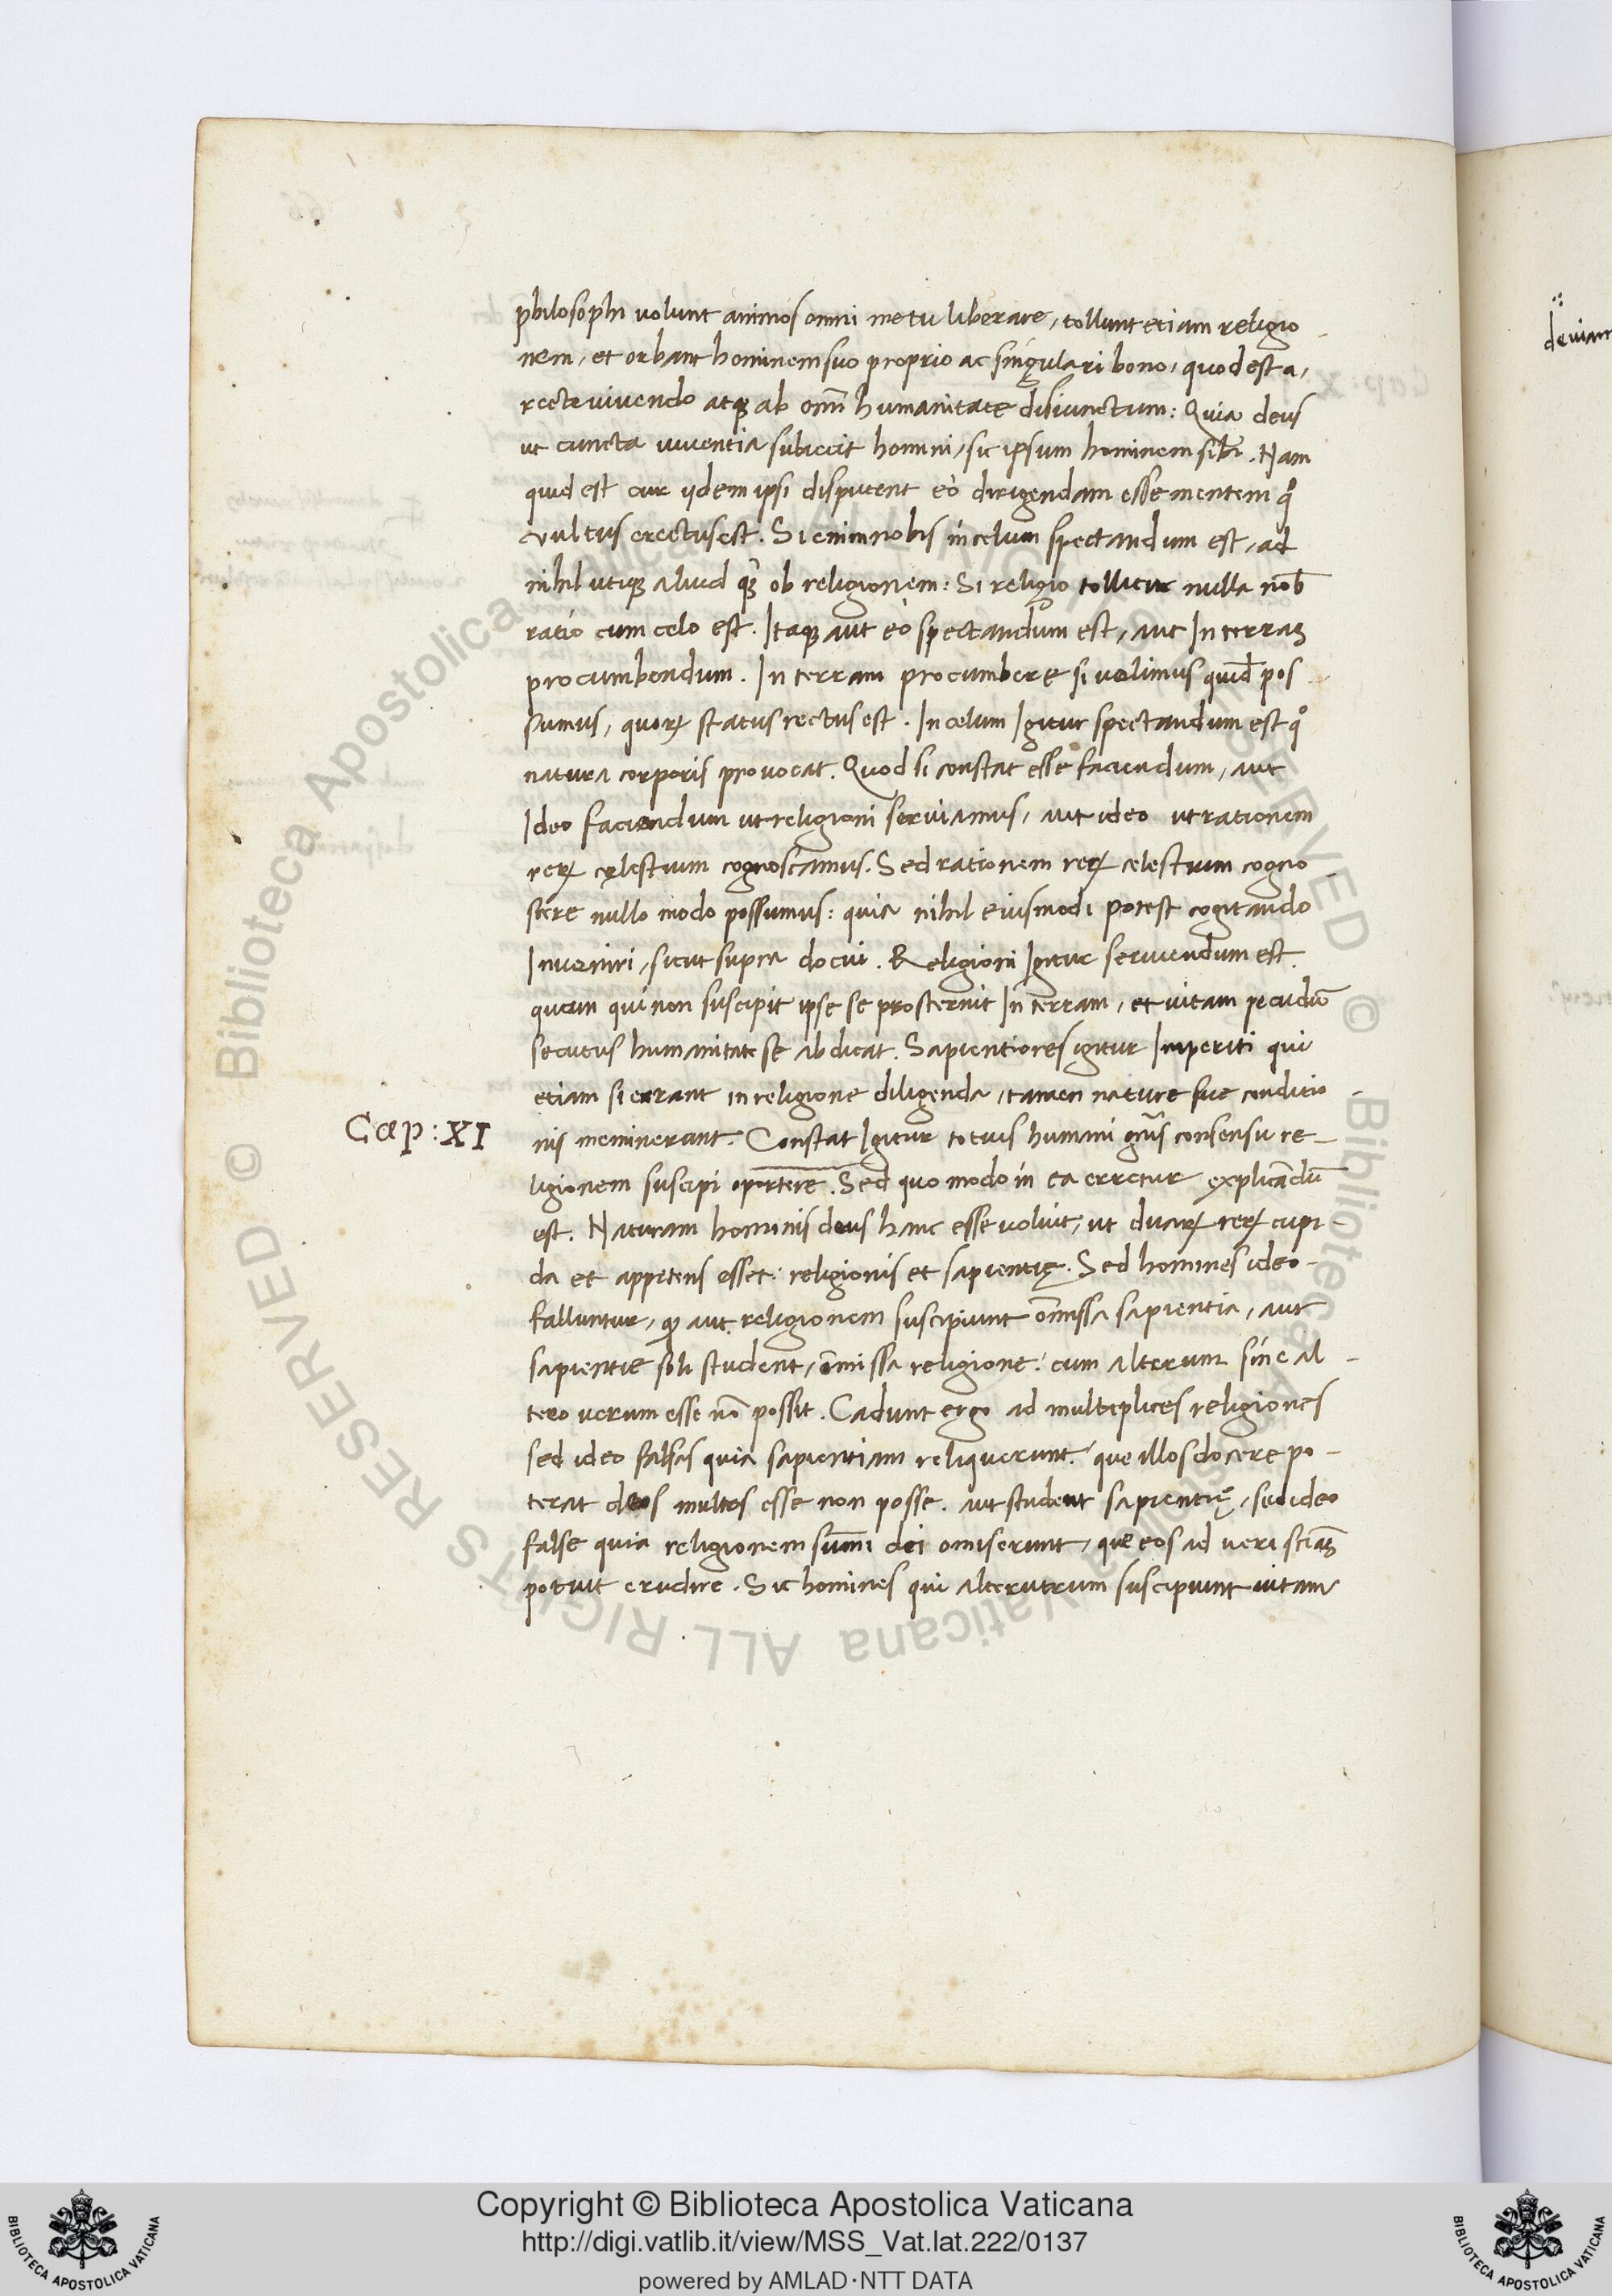 philosophi uolunt animos omni metu liberare, tollunt etiam religio
nem, et orbant hominem suo proprio ac singulari bono, quod est a,
recte vivendo atqꝫ ab omī humanitate disiunctum: Quia deus
ut cuncta viventia subiecit homini, sic ipsum hominem sibi. Nam
quid est cur ijdem ipsi disputent eò dirigendam esse mentem qͦ
vultus erectus est. Si enim nobis in celum spectandum est, ad
nihil utiqꝫ aliud qꝫ̃ ob religionem: Si religio tollitur nulla nob̄
ratio cum celo est. Itaqꝫ aut eò spectandum est, aut In terraꝫ
procumbendum. In terram procumbere si uelimus quid̄ pos
sumus, quoꝝ status rectus est. In celum Igitur spectandum est qͦ
natura corporis provocat. Quod si constat esse faciendum, aut
Ideo faciendum ut religioni serviamus, aut ideo ut rationem
reꝝ cęlestium cognoscamus. Sed rationem reꝝ celestium cogno
scere nullo modo possumus: quia nihil eiusmodi potest cogitando
Inveniri, sicut supra docui. Religioni Igitur serviendum est.
quam qui non suscipit ipse se prosternit In terram, et vitam pecudū
secutus humanitate se abdicat. Sapientiores igitur Imperiti qui
etiam si errant in religione diligenda, tamen nature sue conditio
Cap: XI
nis meminerant. Constat Igitur totius humani gn̄is consensu re-
ligionem suscipi oportere. Sed quo modo in ea erretur explicādū
est. Naturam hominis deus hanc esse voluit, ut duaꝝ reꝝ cupi-
da et appetens esset: religionis et sapientię. Sed homines ideo
falluntur, qꝫ aut religionem suscipiunt om̄issa sapientia, aut
sapientie soli student, om̄issa religione: cum alterum sine al-
tero verum esse nō possit. Cadunt ergo ad multiplices religiones
sed ideo falsas quia sapientiam reliquerunt: que illos docere po-
terat deos multos esse non posse. aut student sapientię, sed ideo
false quia religionem sūmi dei omiserunt, que eos ad veri sciāꝫ
potuit erudire. Sic homines qui alterutrum suscipiunt uitam
deviant
Copyright © Biblioteca Apostolica Vaticana
http://digi.vatlib.it/view/MSS_Vat.lat.222/0137
powered by AMLAD·NTT DATA